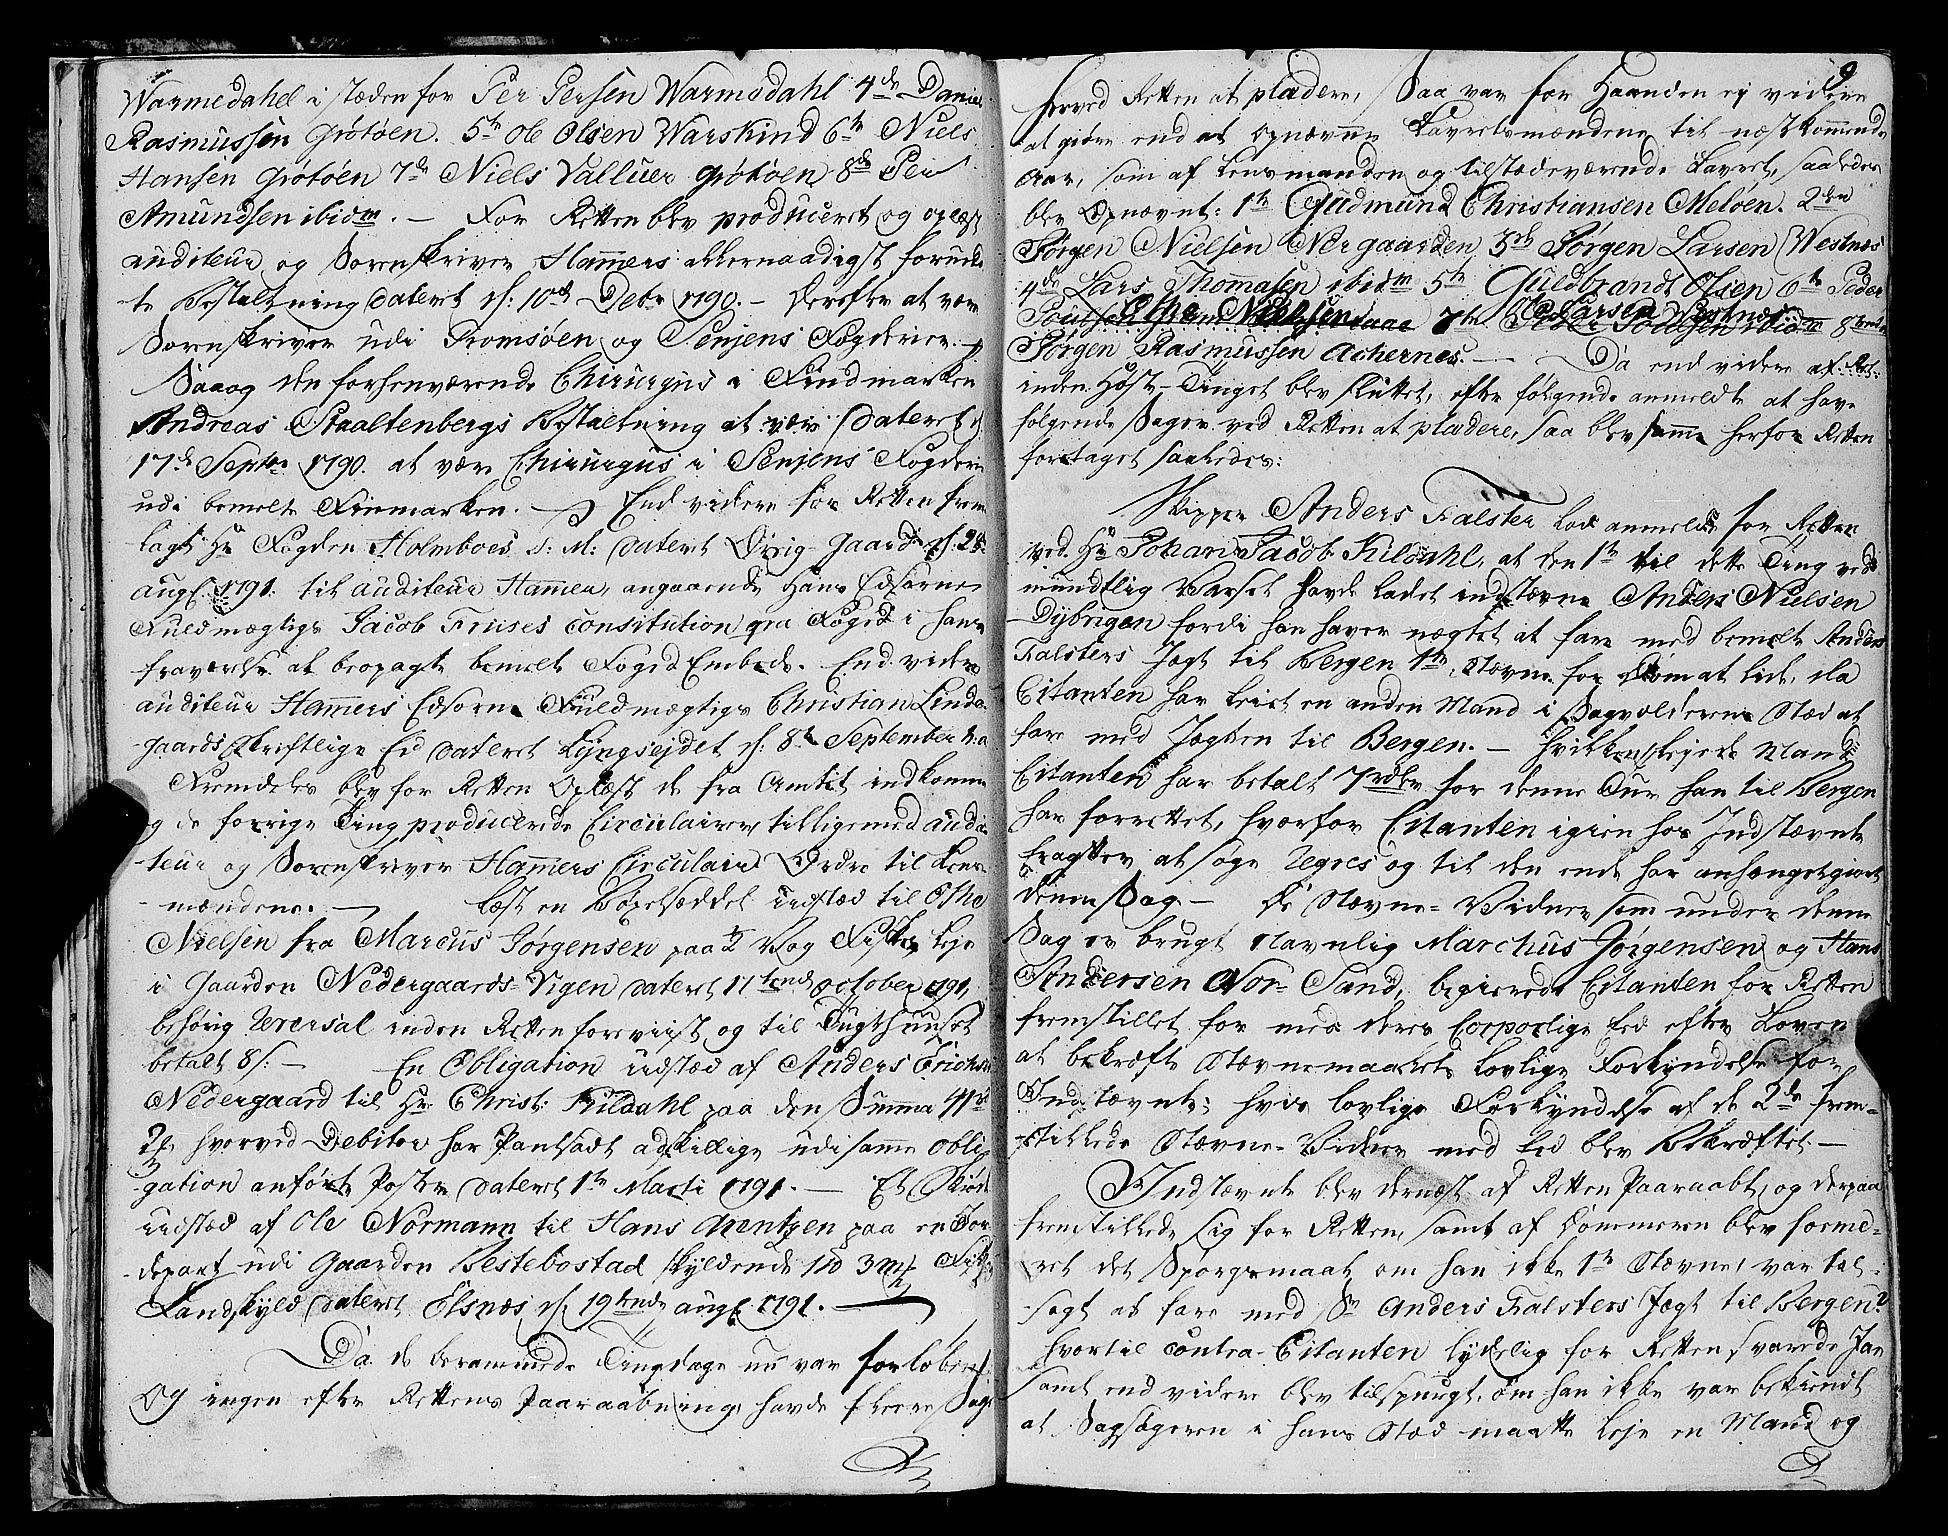 Warmedahl i stæden for Per Persen Warmedahl 4de Daniel
Rasmussen Grøtøen. 5te Ole Olsen Warskind 6te Niels
Hansen Grøtøen 7de Niels Valluer Grøtøen 8de Per
Amundsen ibidm. — For Retten blev produceret og oplæst
auditeur og Sorenskriver Hamers allernaadigst forundte
Bestaltning dateret d: 10de Debr 1790. — Derefter at være
Sorenskriver udi Tromsøen og Senjens Fogderier. —
Saa og den forhenværende Chirurgus i Findmarken
Andreas Staaltenbergs Bestaltning at være dateret d.
17de Septr 1790. at være Chirurgus i Senjens Fogderie
udi bemelte Finmarken. — End videre for Retten frem
lagt Hr Fogden Holmboes S: M: dateret Øvrig-gaard d: 25
augl. 1791. til auditeur Hamer, angaaende Hans Edsorne
Fuldmægtige Jacob Friises Constitution qua Foged i hans
fraværelse at beopagte bemelte Foged Embede. End videre
auditeur Hamers Edsorne Fuldmægtige Christian Linde-
gaards skriftlige Eed dateret Lyngsejdet d: 8de September d:a
Fremdeles blev for Retten Oplæst de fra Amtet indkomne
og de forrige Ting producerede Circulairer, tilligemed audi-
teur og Sorenskriver Hamers Circulair Ordre til Lens-
mændene. — Læst en Bøxelseddel udsted til Otho
Nielsen fra Marcus Jørgensen paa ½ Vog Fiskes Leje
i Gaarden Nedergaards-Vigen dateret 11tende October 1791,
behørig Reversal inden Retten foreviist og til Tugthuuset
betalt 8 s: — En Obligation udsted af Anders Erichsen
Nedergaard til Hr Christ: Kildahl paa den Summa 41 rd
2 hvorved Debitor har Pantsadt adskillige udi samme obli-
gation anførte Poster dateret 1te Marti 1791. — Et Skiøde
udsted af Ole Normann til Hans Mentzen paa en Jor-
depart udi Gaarden Bestebostad skyldende 1 pd 3 mk Fiskes
Landskyld dateret Elsnæs d: 19tende augl. 1791. —
Da de berammede Tingdage nu var forløben
Og ingen efter Rettens Paaraabning, havde fleere Sager
9
herved Retten at pladere, Saa var for Haanden ej videre
at giøre end at Opnævne Laurettsmændene til næstkommende
Aar, som af Lensmanden og tilstædeværende Lauret, saaledes
blev Opnævnt: 1te Gudmund Christiansen Meløen. 2den
Jørgen Nielsen Nergaarden, 3de Jørgen Larsen Westnes
4de Lars Thomasen ibidm 5te Guldbrandt Olsen 6te Peder
Otho Nielsen 7de Ole Larsen Westnes 8tende
Jørgen Rasmussen Achernes. — Da end videre af Ret-
inden Høst-Tinget blev sluttet, efter følgende anmeldte at have
følgende Sager ved Retten at pladere, saa blev samme herfor Retten
foretaget saaledes:
Skipper Anders Falster lod anmelde for Retten
ved Hr Johan Jacob Kildahl, at den 1te til dette Ting ved
mundtlig Varsel havde ladet indstævne Anders Nielsen
Dybvigen fordi han haver nægtet at fare med bemelte Anders
Falsters Jægt til Bergen 1te Stævne for Dom at lide, da
Citanten har leiet en anden Mand i Sagvolderens Stæd at
fare med Jægten til Bergen. — Hvilken lejede Mand
Citanten har betalt 7 rdlr for denne Tur han til Bergen
har forrettet, hvorfor Citanten igien hos Indstævnte
tragter at søge Regres og til den ende har anhængetgiort
denne Sag — De Stævne-Vidner som under denne
Sag er brugt Navnlig Marchus Jørgensen og Hans
Andersen Nor-Sand, begierede Citanten for Retten
fremstillet for med deres Corporlige Eed efter Loven
at bekræfte Stævnemaalets lovlige Forkyndelse for
Indstævnte; hvis lovlige Forkyndelse af de 2de frem-
stillede Stævne-Vidner med Eed blev Bekræftet. —
Indstævnte blev dernæst af Retten Paaraabt, og derpaa
fremstillede sig for Retten, samt af Dommeren blev forme-
ret det Spørgsmaal om han ikke 1te Stævne var til-
sagt at fare med Sr Anders Falsters Jægt til Bergen?
hvortil contra-Citanten lydelig for Retten svarede Ja,
samt end videre blev tilspurgt, om han ikke var bekiendt
at Sagsøgeren i hans Stæd maatte leje en Mand og